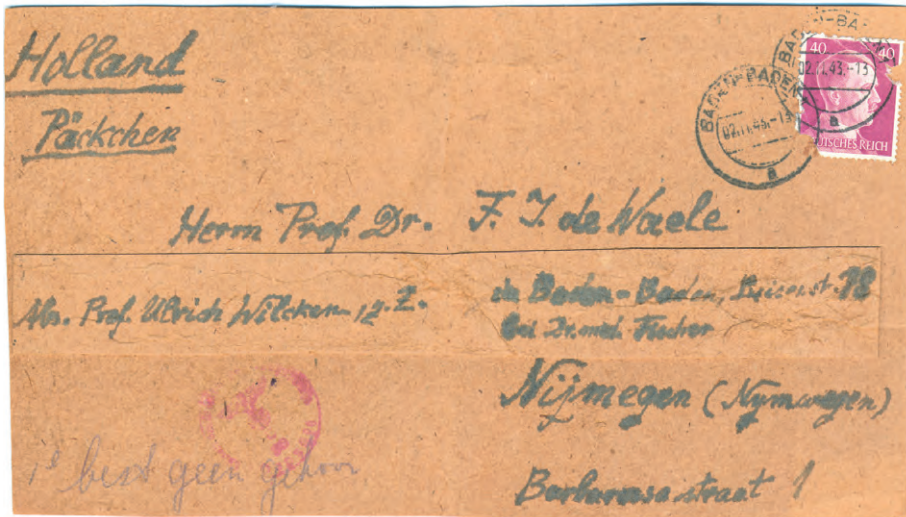 Holland
Päckchen
BADEN-BADEN
02.11.43.-13
a
BADEN-BADEN
02.11.43.-13
a
40 40
DEUTSCHES REICH
Herrn Prof. Dr. F. J. de Waele
Abs. Prof. Ulrich Wilcken, z. Z. in Baden-Baden, 18
bei Dr. med. Fischer
Nijmegen (Nymwegen)
Barbarossa straat 1
1e best geen gehoor